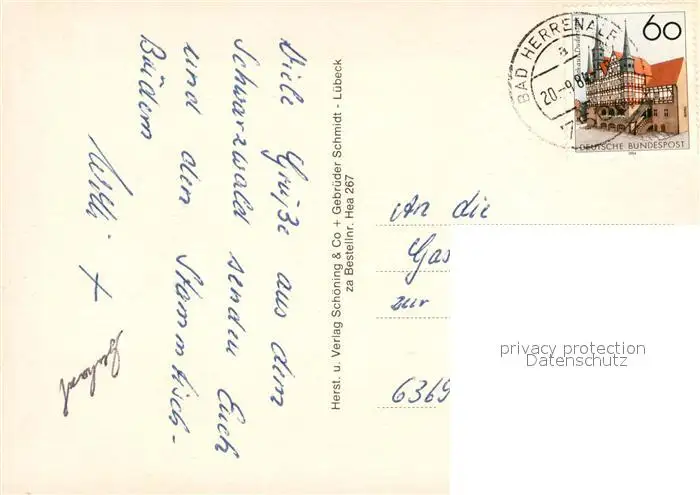 Viele Grüße aus dem
Schwarzwald senden Euch
und den Stammtisch-
Brüdern
Willi +
Gerhard
Herst. u. Verlag Schöning & Co + Gebrüder Schmidt - Lübeck
za Bestellnr. Hea 267
BAD HERRENALB
a
20.-9.84
60
DEUTSCHE BUNDESPOST
1984
An die
Gas
zur
6369
privacy protection
Datenschutz